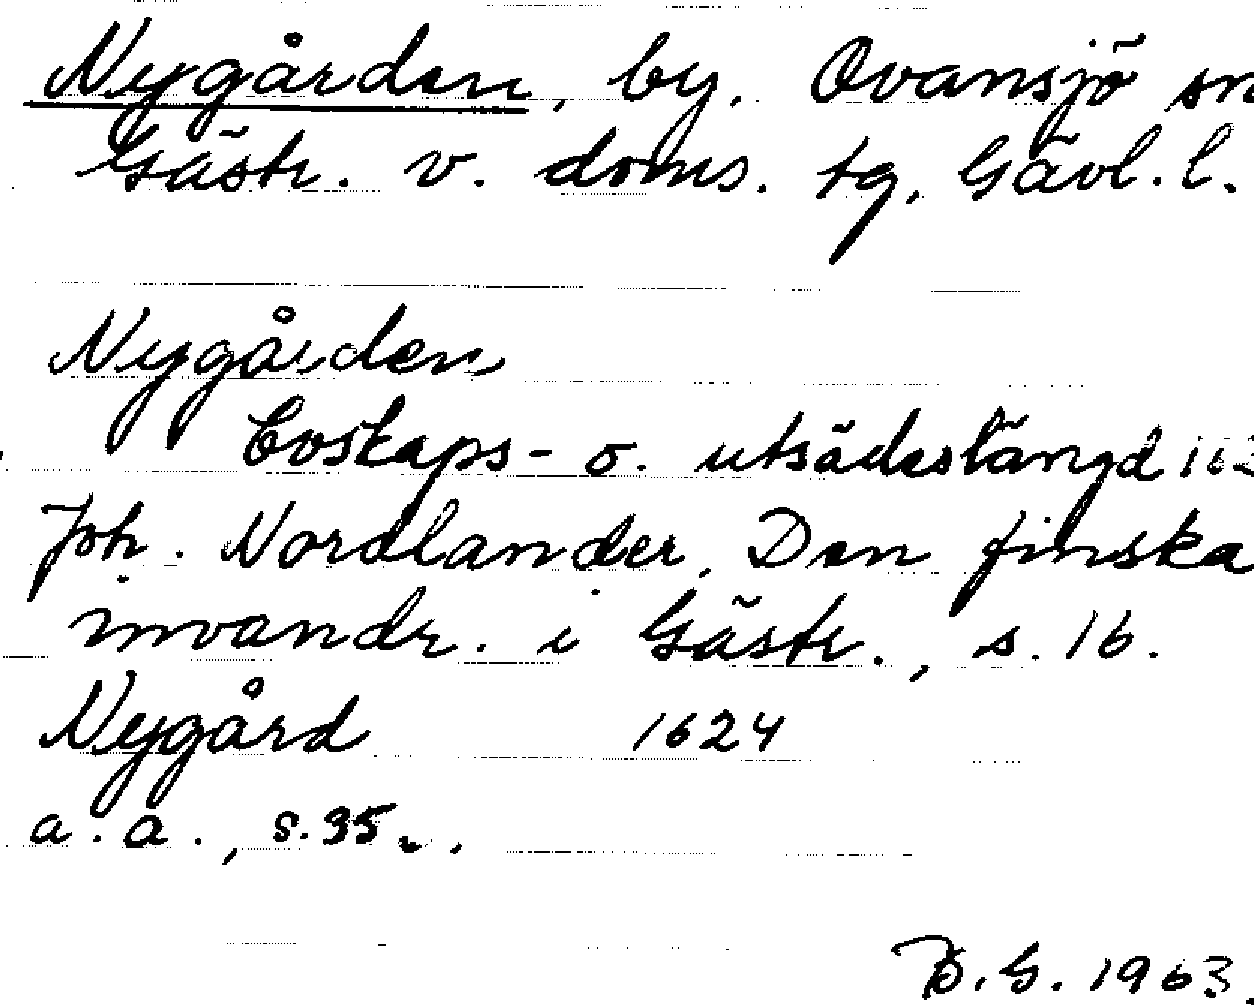 Nygården, by. Ovansjö sn
Gästr. v. doms. tg. Gävl. l.
Nygården
Boskaps- o. utsädeslängd
Joh. Nordlander, Den finska
invandr. i Gästr., s. 16.
Nygård 1624
a. a., s. 35.
B.G. 1963.